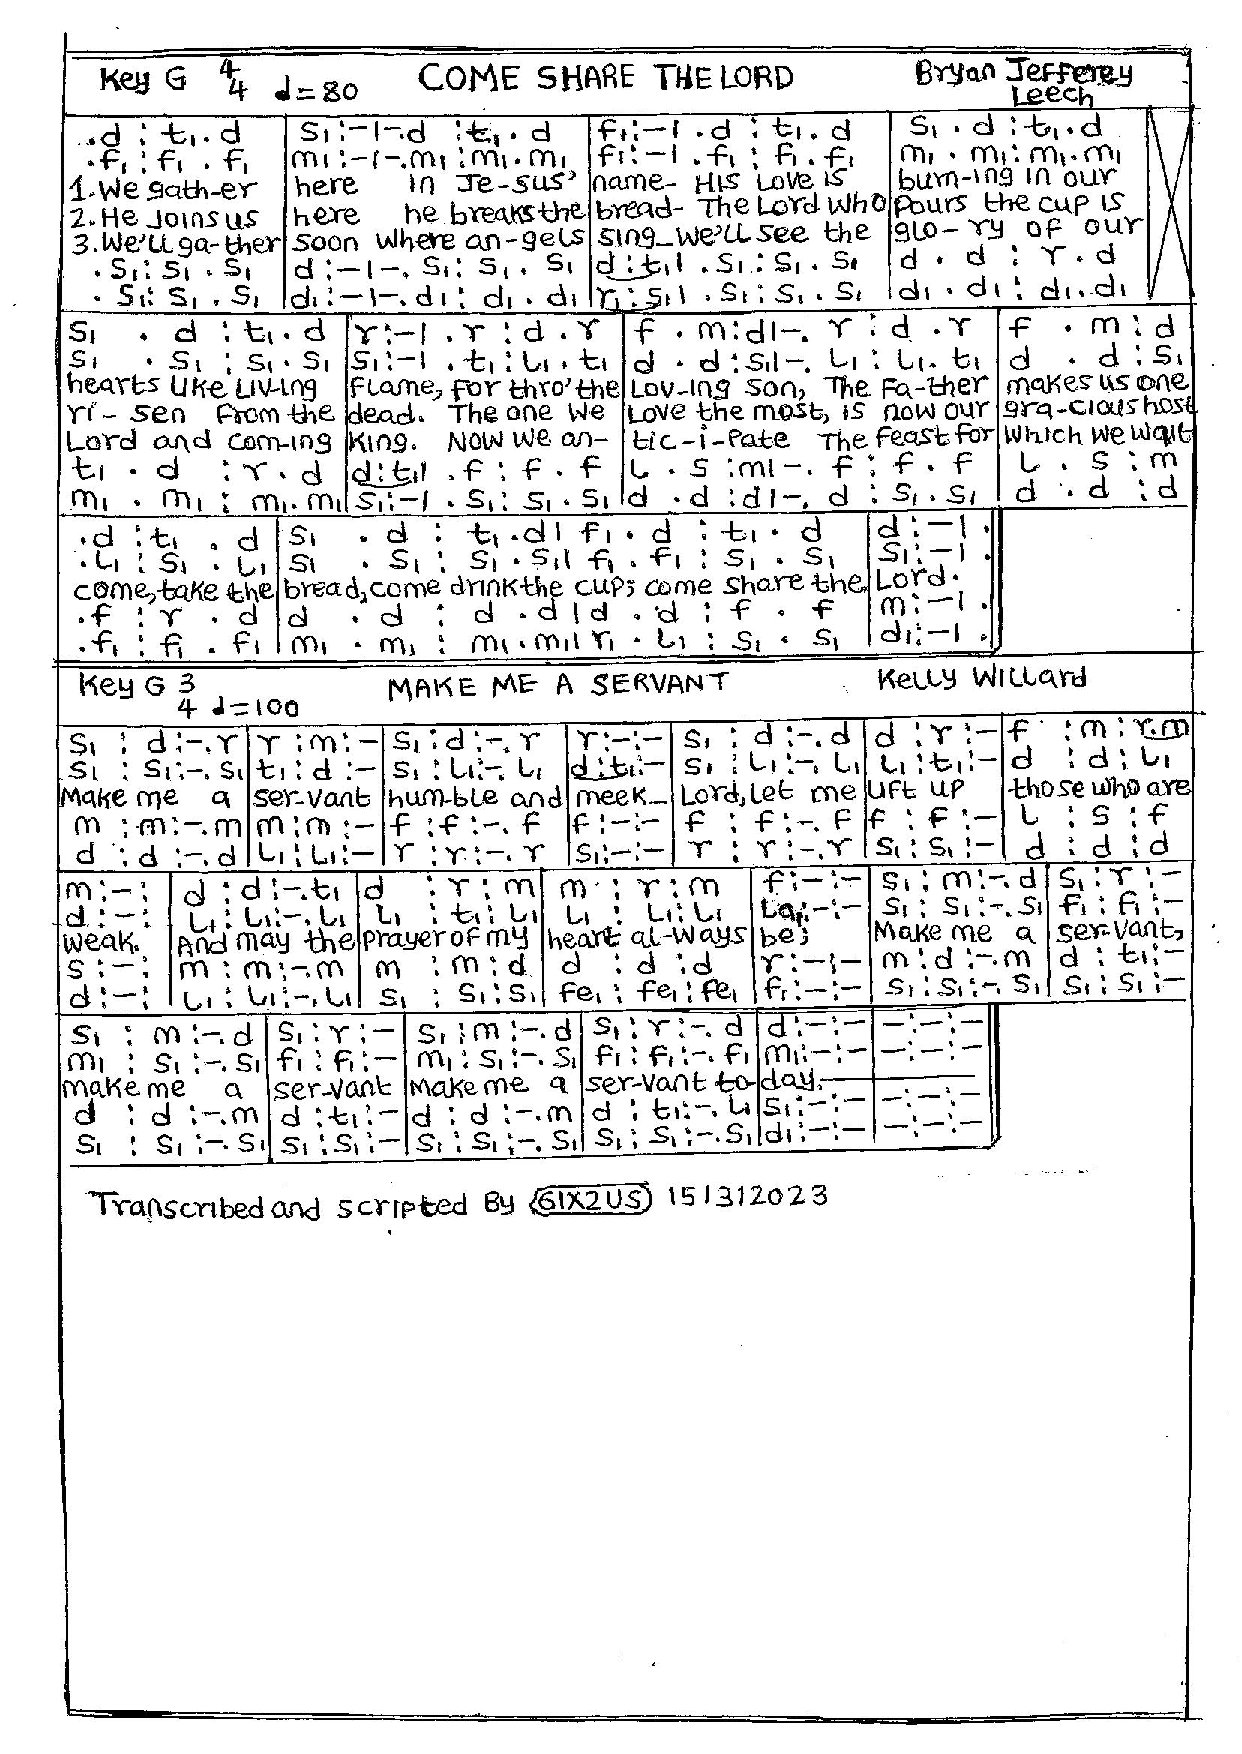 Key G 4/4 d=80 COME SHARE THE LORD Bryan Jefferey Leech
.d : t₁.d | s₁:-|-.d :t₁.d | f₁:-|.d : t₁.d | s₁.d : t₁.d
.f₁ : f₁.f₁ | m₁:-|-.m₁ :m₁.m₁ | f₁:-|.f₁ : f₁.f₁ | m₁.m₁ : m₁.m₁
1. We gath-er | here in Je-sus' | name- His Love is | burn-ing in our
2. He Joins us | here he breaks the | bread- The Lord who | pours the cup is
3. We'll ga-ther | soon where an-gels | sing_ we'll see the | glo-ry of our
.s₁ : s₁.s₁ | d:-|-.s₁ : s₁.s₁ | d:t₁| .s₁ : s₁.s₁ | d.d : r.d
.s₁ : s₁.s₁ | d₁:-|-.d₁ : d₁.d₁ | r₁:s₁| .s₁ : s₁.s₁ | d₁.d₁ : d₁.d₁
s₁.d : t₁.d | r:-|.r : d.r | f.m:d|-.r : d.r | f.m : d
s₁.s₁ : s₁.s₁ | s₁:-|.t₁ : l₁.t₁ | d.d:s₁|-.l₁ : l₁.t₁ | d.d : s₁
hearts like Liv-ing | flame, for thro' the | Lov-ing Son, The Fa-ther | makes us one
ri-sen from the | dead. The one we | Love the most, is now our | gra-cious host
Lord and com-ing | King. Now we an- | tic-i-pate The feast for | which we wait
t₁.d : r.d | d:t₁| .f : f.f | l.s:m|-.f : f.f | l.s : m
m₁.m₁ : m₁.m₁ | s₁:-|.s₁ : s₁.s₁ | d.d:d|-.d : s₁.s₁ | d.d : d
.d : t₁.d | s₁.d : t₁.d| f₁.d : t₁.d | d:-|.
.l₁ : s₁.l₁ | s₁.s₁ : s₁.s₁| f₁.f₁ : s₁.s₁ | s₁:-|.
come, take the | bread, come drink the cup; come share the | Lord.
.f : r.d | d.d : d.d|d.d : f.f | m:-|.
.f₁ : f₁.f₁ | m₁.m₁ : m₁.m₁| r₁.l₁ : s₁.s₁ | d₁:-|.
Key G 3/4 d=100 MAKE ME A SERVANT Kelly Willard
s₁ : d:-.r | r:m:- | s₁:d:-.r | r:-:- | s₁ : d:-.d | d:r:- | f:m:r.m
s₁ : s₁:-.s₁ | t₁:d:- | s₁:l₁:-.l₁ | d:t₁:- | s₁ : l₁:-.l₁ | l₁:t₁:- | d:d:l₁
Make me a | ser-vant | hum-ble and | meek_ | Lord, let me | lift up | those who are
m:m:-.m | m:m:- | f:f:-.f | f:-:- | f:f:-.f | f:f:- | l:s:f
d:d:-.d | l₁:l₁:- | r:r:-.r | s₁:-:- | r:r:-.r | s₁:s₁:- | d:d:d
m:-: | d:d:-.t₁ | d:r:m | m:r:m | f:-:- | s₁:m:-.d | s₁:r:-
d:-: | l₁:l₁:-.l₁ | l₁:t₁:l₁ | l₁:l₁:l₁ | la₁:-:- | s₁:s₁:-.s₁ | f₁:f₁:-
weak. | And may the | prayer of my | heart al-ways | be; | Make me a | ser-vant,
s:-: | m:m:-.m | m:m:d | d:d:d | r:-:- | m:d:-.m | d:t₁:-
d:-: | l₁:l₁:-.l₁ | s₁:s₁:s₁ | fe₁:fe₁:fe₁ | f₁:-:- | s₁:s₁:-.s₁ | s₁:s₁:-
s₁ : m:-.d | s₁:r:- | s₁:m:-.d | s₁:r:-.d | d:-:- | -:-:-
m₁ : s₁:-.s₁ | f₁:f₁:- | m₁:s₁:-.s₁ | f₁:f₁:-.f₁ | m₁:-:- | -:-:-
make me a | ser-vant | Make me a | ser-vant to- | day.
d : d:-.m | d:t₁:- | d:d:-.m | d:t₁:-.l₁ | s₁:-:- | -:-:-
s₁ : s₁:-.s₁ | s₁:s₁:- | s₁:s₁:-.s₁ | s₁:s₁:-.s₁ | d₁:-:- | -:-:-
Transcribed and scripted By 61X2US 15/3/2023